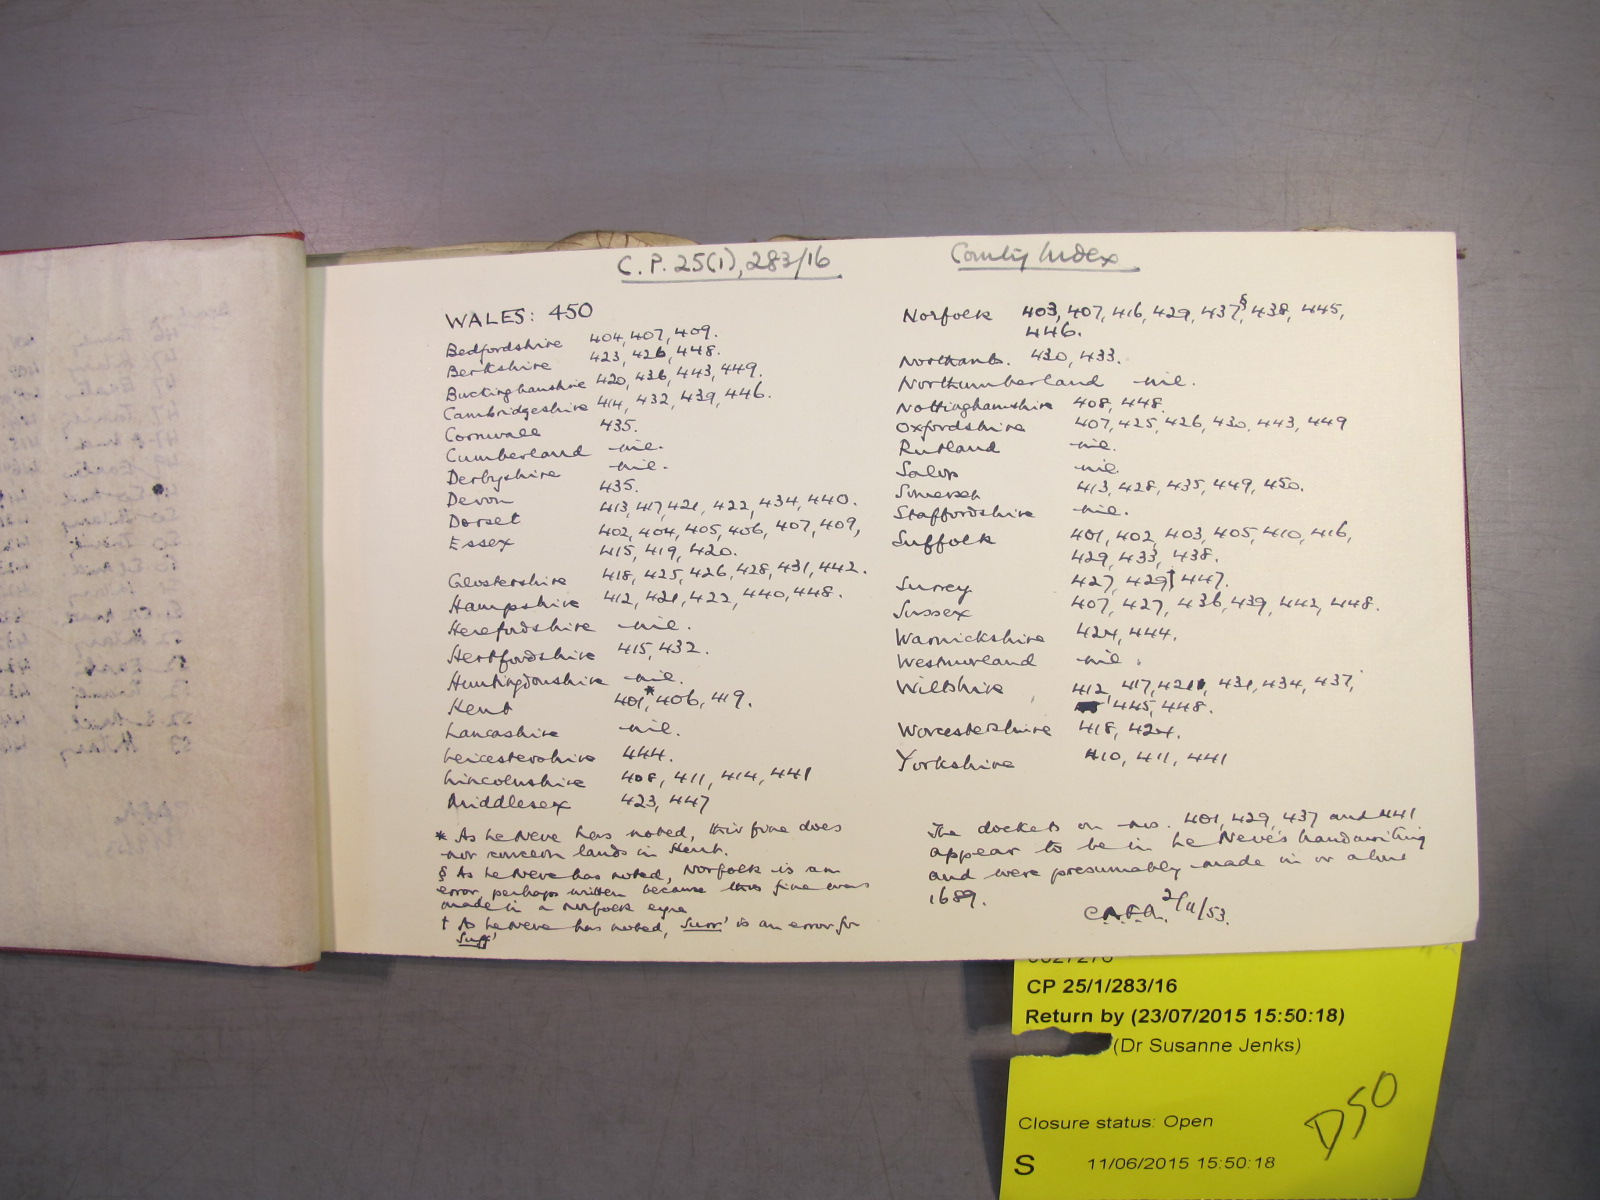 C. P. 25(1), 283/16
County Index
WALES: 450
Bedfordshire 404, 407, 409.
Berkshire 423, 426, 448.
Buckinghamshire 420, 436, 443, 449.
Cambridgeshire 414, 432, 439, 446.
Cornwall 435.
Cumberland nil.
Derbyshire nil.
Devon 435.
Dorset 413, 417, 421, 422, 434, 440.
Essex 402, 404, 405, 406, 407, 409,
415, 419, 420.
Glostershire 418, 425, 426, 428, 431, 442.
Hampshire 412, 421, 422, 440, 448.
Herefordshire nil.
Hertfordshire 415, 432.
Huntingdonshire nil.
Kent 401*, 406, 419.
Lancashire nil.
Leicestershire 444.
Lincolnshire 408, 411, 414, 441
Middlesex 423, 447
* As Le Neve has noted, this fine does
not concern lands in Kent.
§ As Le Neve has noted, Norfolk is an
error, perhaps written because this fine was
made in a Norfolk eyre
† As Le Neve has noted, Surr' is an error for
Suff'
Norfolk 403, 407, 416, 429, 437§, 438, 445,
446.
Northants. 430, 433.
Northumberland nil.
Nottinghamshire 408, 448.
Oxfordshire 407, 425, 426, 430, 443, 449
Rutland nil.
Salop nil.
Somerset 413, 428, 435, 449, 450.
Staffordshire nil.
Suffolk 401, 402, 403, 405, 410, 416,
429, 433, 438.
Surrey 427, 429† 447.
Sussex 407, 427, 436, 439, 442, 448.
Warwickshire 424, 444.
Westmorland nil.
Wiltshire 412, 417, 421, 431, 434, 437,
445, 448.
Worcestershire 418, 424.
Yorkshire 410, 411, 441
The dockets on nos. 401, 429, 437 and 441
appear to be in Le Neve's handwriting
and were presumably made in or about
1689.
C.A.F.M. 2/11/53.
CP 25/1/283/16
Return by (23/07/2015 15:50:18)
(Dr Susanne Jenks)
Closure status: Open
D50
S 11/06/2015 15:50:18